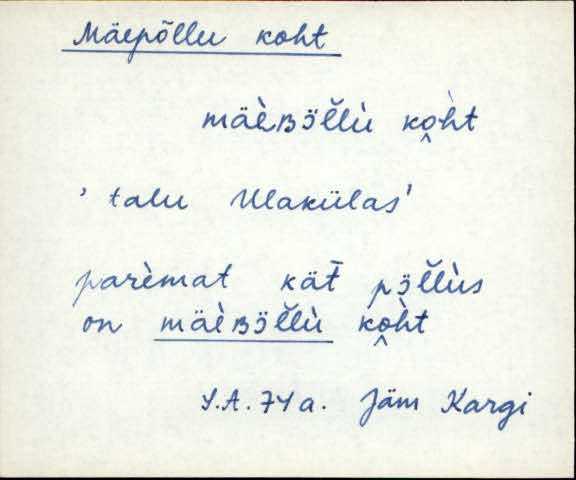 Mäepõllu koht
mäèʙɜ̈ĕ̀llù ko̭h̀t
' talu Ulakülas'
parèmat kät̄ pɜ̈llùs
on mäèʙɜ̈llù ko̭h̀t
Y.A. 74 a. Jäm Kargi